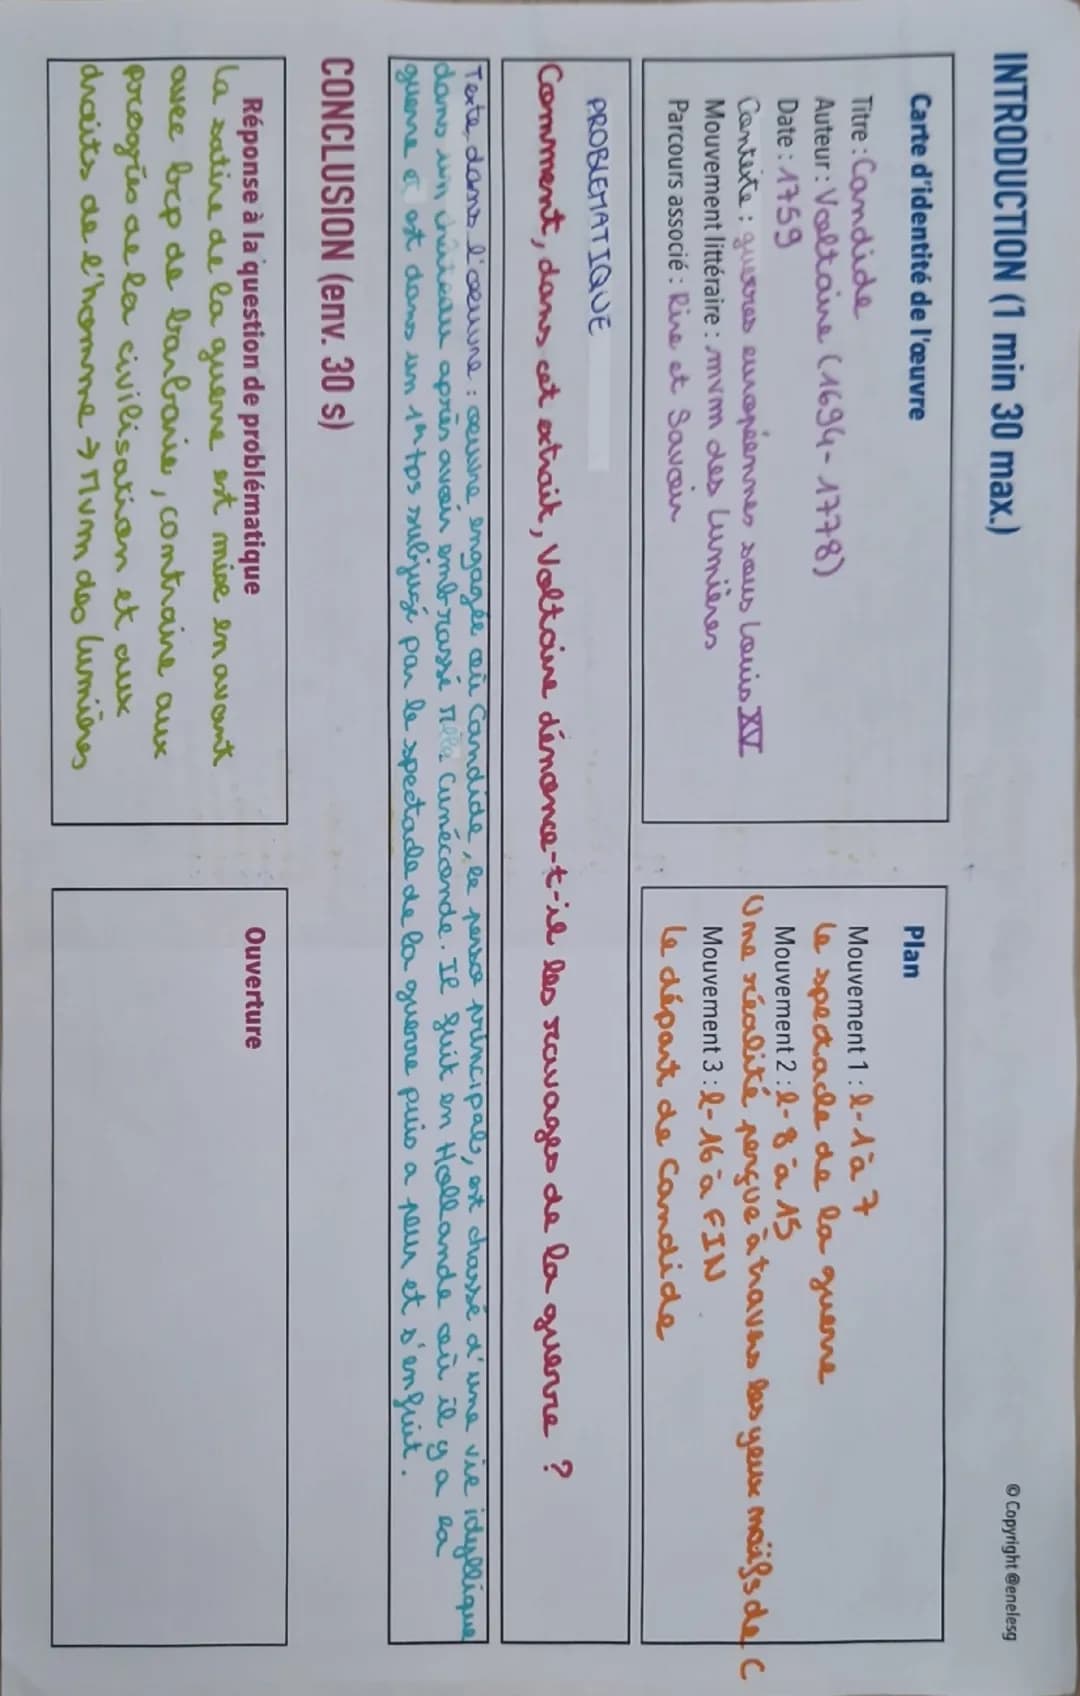 © Copyright @enelesg
INTRODUCTION (1 min 30 max.)
Carte d'identité de l'œuvre
Titre : Candide
Auteur : Voltaire (1694-1778)
Date : 1759
Contexte : guerres européennes sous Louis XV
Mouvement littéraire : mvm des Lumières
Parcours associé : Rire et Savoir
Plan
Mouvement 1 : l-1 à 7
Le spectacle de la guerre
Mouvement 2 : l-8 à 15
Une réalité perçue à travers les yeux naïfs de C
Mouvement 3 : l-16 à FIN
Le départ de Candide
PROBLEMATIQUE
Comment, dans cet extrait, Voltaire dénonce-t-il les ravages de la guerre ?
Texte, dans l'œuvre : œuvre engagée où Candide, le perso principal, est chassé d'une vie idyllique
dans un château après avoir embrassé Cunégonde. Il fuit en Hollande où il y a la
guerre et est dans un 1er tps subjugé par le spectacle de la guerre puis a peur et s'enfuit.
CONCLUSION (env. 30 s)
Réponse à la question de problématique
La satire de la guerre est mise en avant
avec bcp de barbarie, contraire aux
progrès de la civilisation et aux
droits de l'homme → Mvm des Lumières
Ouverture